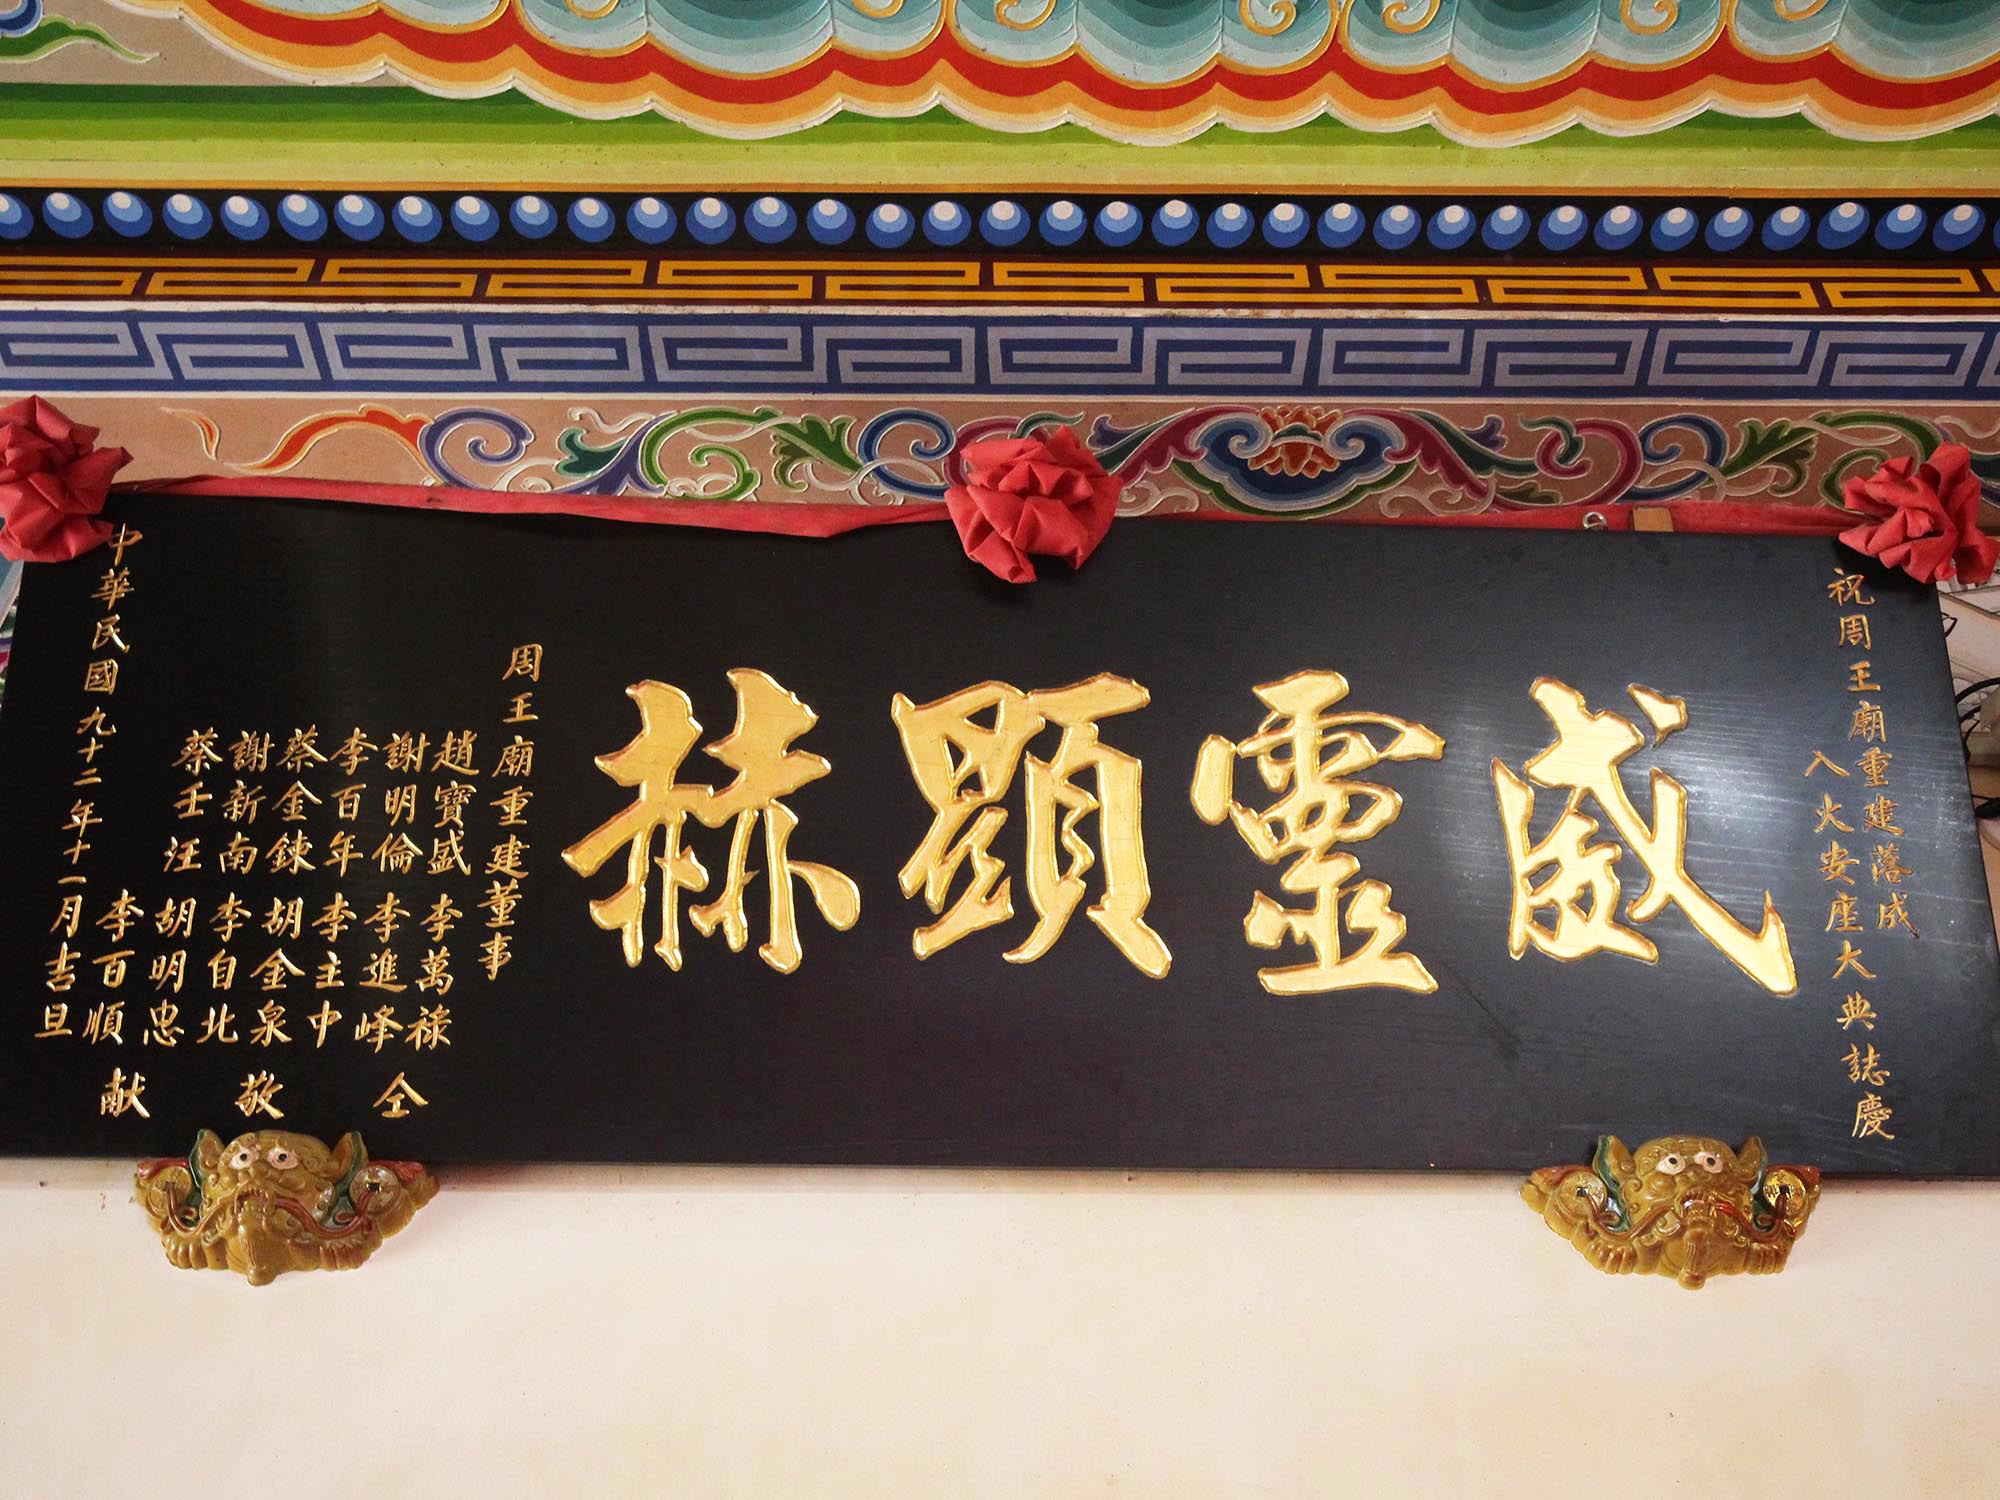 祝周王廟重建落成
入火安座大典誌慶
威靈顯赫
周王廟重建董事
趙寶盛 李萬祿
謝明倫 李進峰
李百年 李主中
蔡金鍊 胡金泉
謝新南 李自北
蔡壬汪 胡明忠
李百順
仝敬献
中華民國九十二年十一月吉旦